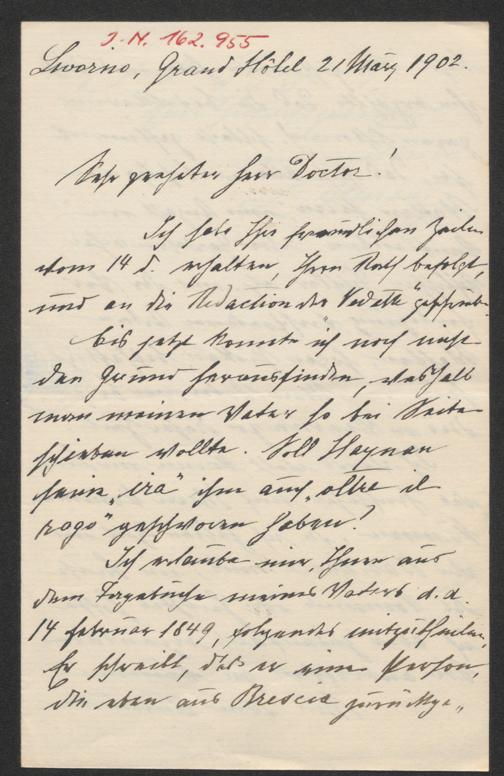 J. N. 162.955
Livorno, Grand Hôtel 21 März 1902.
Sehr geehrter Herr Doctor!
Ich habe Ihre freundlichen Zeilen
vom 14 d. erhalten, Ihren Rath befolgt,
und an die Redaction der "Vedette" geschrieb.
Bis jetzt konnte ich noch nicht
den Grund herausfinden, weshalb
man meinen Vater so bei Seite
schieben wollte. Soll Haynau
seine "ira" ihm auch "oltre il
rogo" geschworen haben?
Ich erlaube mir, Ihnen aus
dem Tagebuche meines Vaters d. d.
14 Februar 1849, folgendes mitzutheilen.
Er schreibt, daß er eine Person,
die eben aus Brescia zurückge„